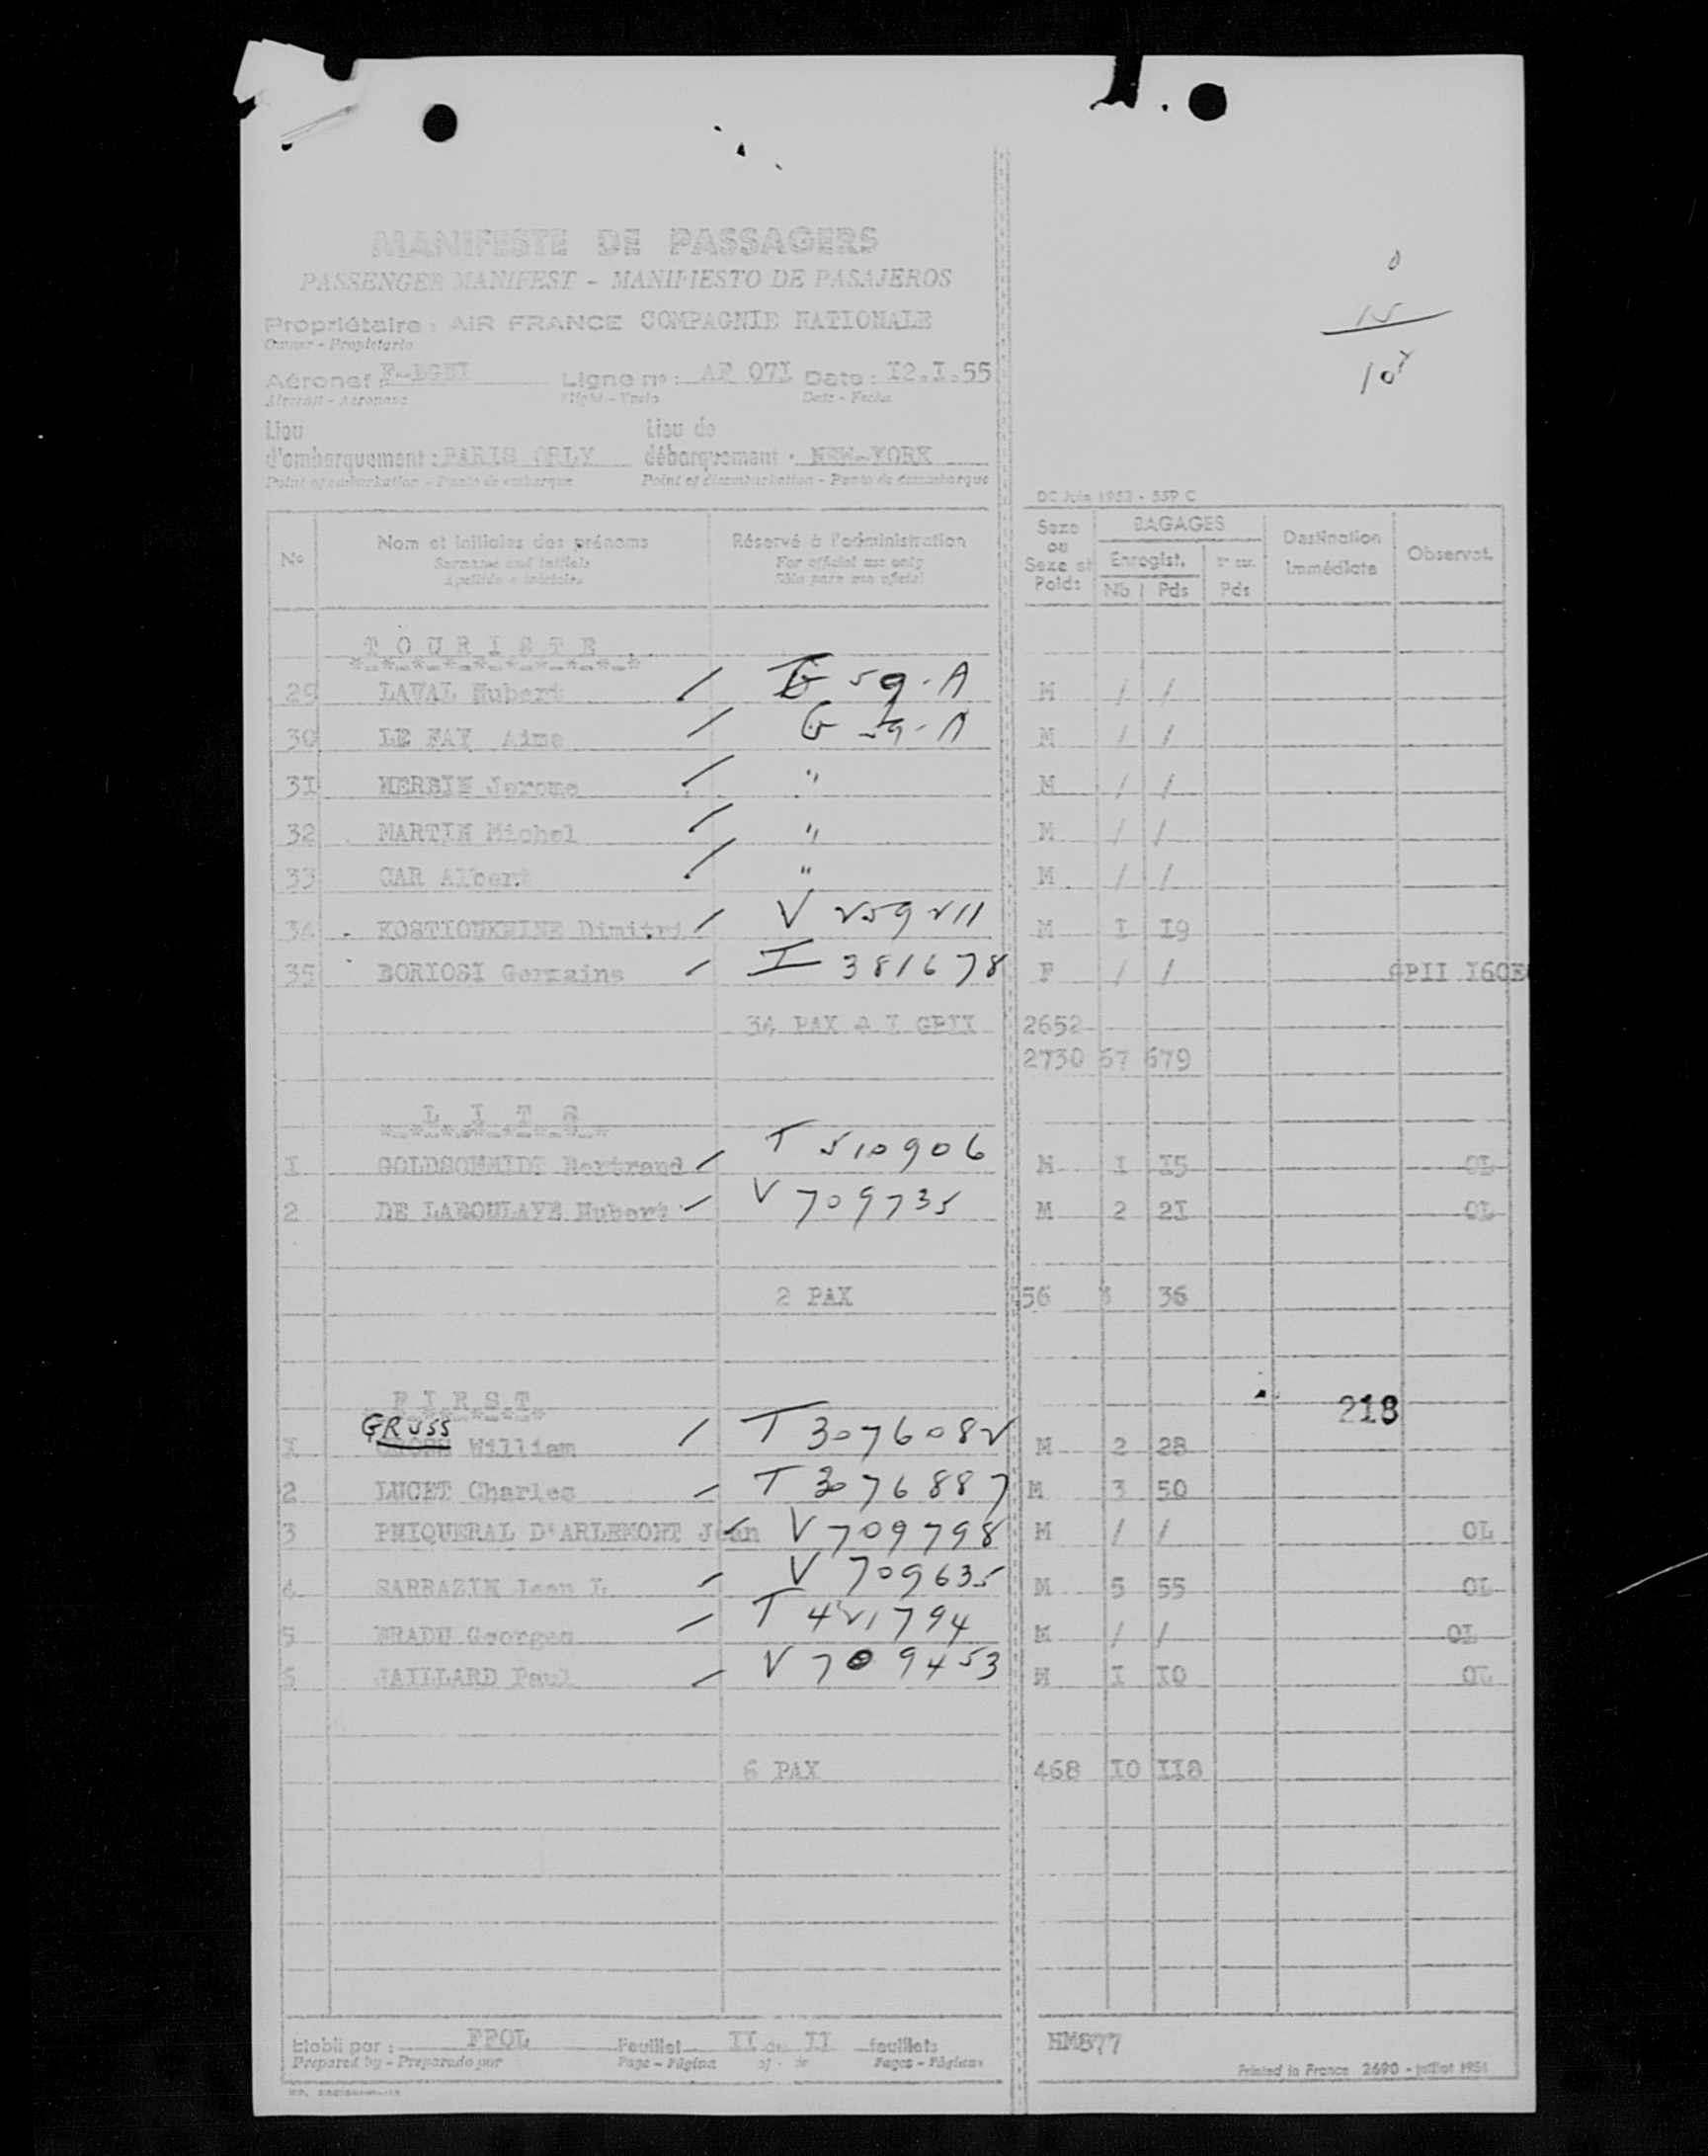 MANIFESTE DE PASSAGERS
PASSENGER MANIFEST - MANIFIESTO DE PASAJEROS
Propriétaire : AIR FRANCE COMPAGNIE NATIONALE
Owner - Propietario
Aéronef : Ligne no : AF 07I Date : I2.I.55
Aircraft - Aeronave Flight - Vuelo Date - Fecha
Lieu Lieu de
d'embarquement : PARIS ORLY débarquement : NEW-YORK
Point of embarkation - Punto de embarque Point of disembarkation - Punto de desembarque
0
15
10
DC Juin 1952 - 559 C
No Nom et initiales des prénoms Réservé à l'administration Sexe ou Sexe et Poids BAGAGES Destination immédiate Observat.
Surname and initials For official use only Enregist.
Apellido e iniciales Sólo para uso oficial Nb Pds Pds
T O U R I S T E
29 LAVAL Hubert / G 59-A M / /
30 LE FAY Aime / G 59-A M / /
3I MERSIN Jerome / " M / /
32 MARTIN Michel / " M / /
33 CAR Albert / " M / /
34 Dimitri / V 259211 M I I9
35 BORIOSI Germaine / I 381678 F / / GPII I60E
34 PAX & I GPII 2652
2730 57 679
L I T S
I GOLDSCHMIDT Bertrand / T 510906 M I I5 OL
2 DE LABOULAYE Hubert / V 709735 M 2 2I OL
2 PAX 56 3 36
F I R S T
218
GRUSS
I William / T 3076082 M 2 28
2 LUCET Charles / T 3076887 M 3 50
3 D'ARLEMONT Jean / V 709798 M / / OL
4 SARRAZIN Jean L. / V 709635 M 5 55 OL
5 Georges / T 421794 M / / OL
6 JAILLARD Paul / V 709453 M I I0 OL
6 PAX 468 I0 II8
Etabli par : Feuillet II de II feuillets HM877
Prepared by - Preparado por Page - Página of - de Pages - Páginas
Printed in France 2690 - juillet 1954